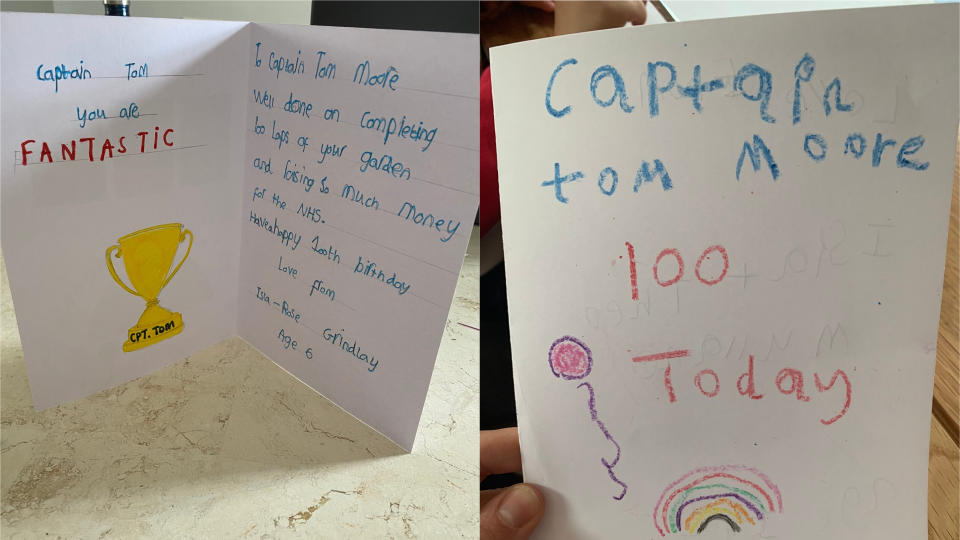 Captain Tom
you are
FANTASTIC
CPT. TOM
To Captain Tom Moore
Well done on completing
100 laps of your garden
and raising so much money
for the NHS.
Have a happy 100th birthday
Love from
Isla-Rose Grindlay
Age 6
Captain
tom Moore
100
Today